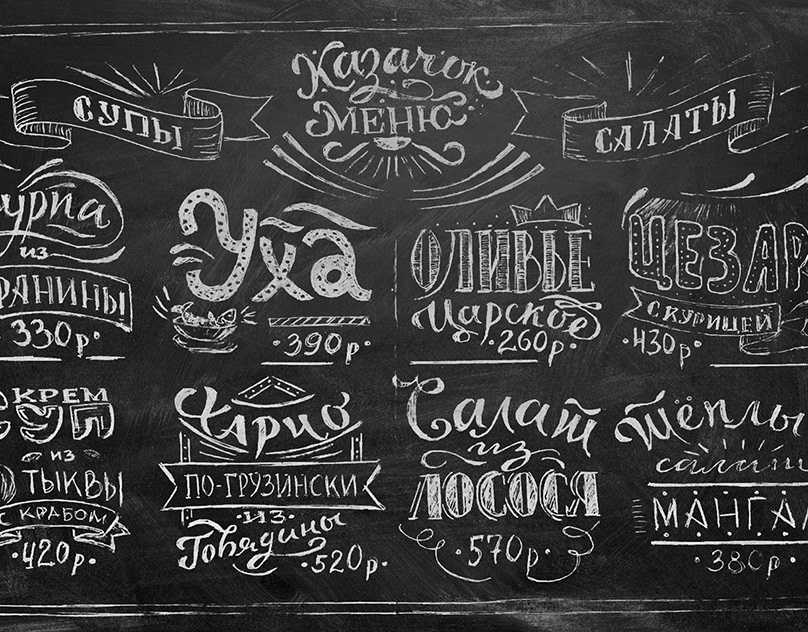 Казачок
МЕНЮ
СУПЫ
урпа
из
РАНИНЫ
330р.
Уха
390р
КРЕМ
СУП
из
ТЫКВЫ
с КРАБОМ
420р
Харчо
ПО-ГРУЗИНСКИ
из
Говядины
520р
САЛАТЫ
ОЛИВЬЕ
Царское
260р
ЦЕЗАР
С КУРИЦЕЙ
430р
Салат
из
ЛОСОСЯ
570р
Тёплы
салат
МАНГАЛ
380р